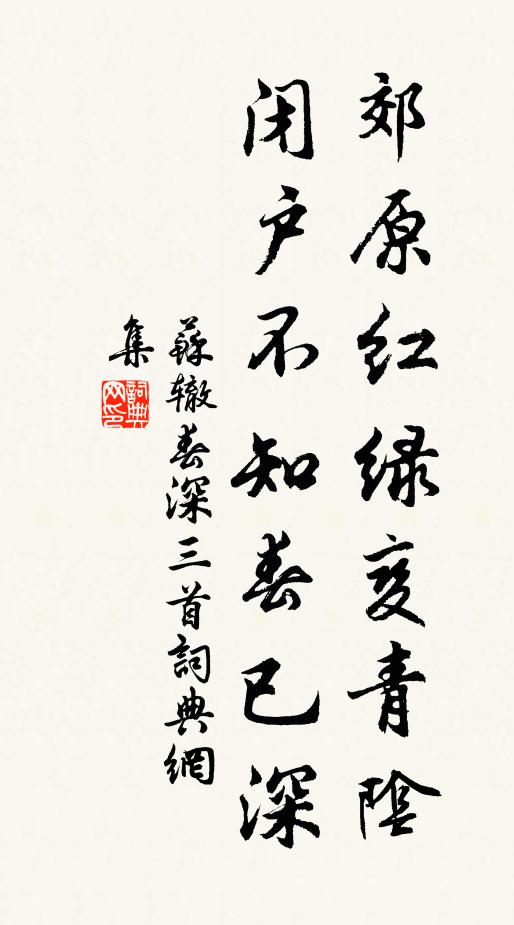 郊原红绿变青阴
闭户不知春已深
蘇辙春深三首詞典網
集
詞典网印